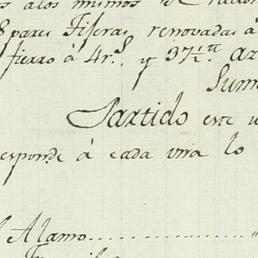 alos mimos de
8 pares Tiseras renovadas à
fierro à 4 r.s y 37 1/2 tt
Sum
Partido este
esponde à cada una lo
Alamo